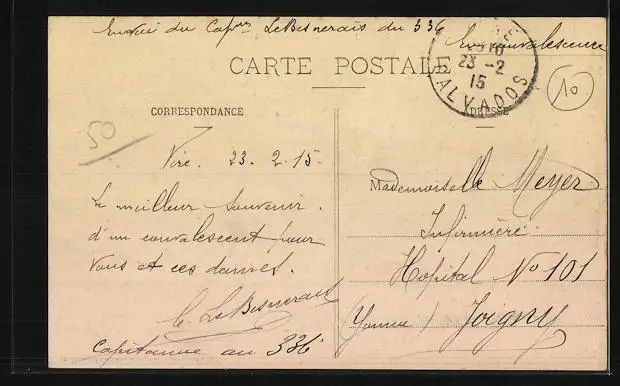 Envoi du Capne LeBesnerais du 336
En convalescence
CARTE POSTALE
VIRE
23 -2
15
CALVADOS
10
CORRESPONDANCE
ADRESSE
50
Vire. 23. 2. 15
Le meilleur souvenir
d'un convalescent pour
vous et ces dames.
C. LeBesnerais
Capitaine au 336
Mademoiselle Meyer
Infirmière
Hôpital No 101
(Yonne) Joigny